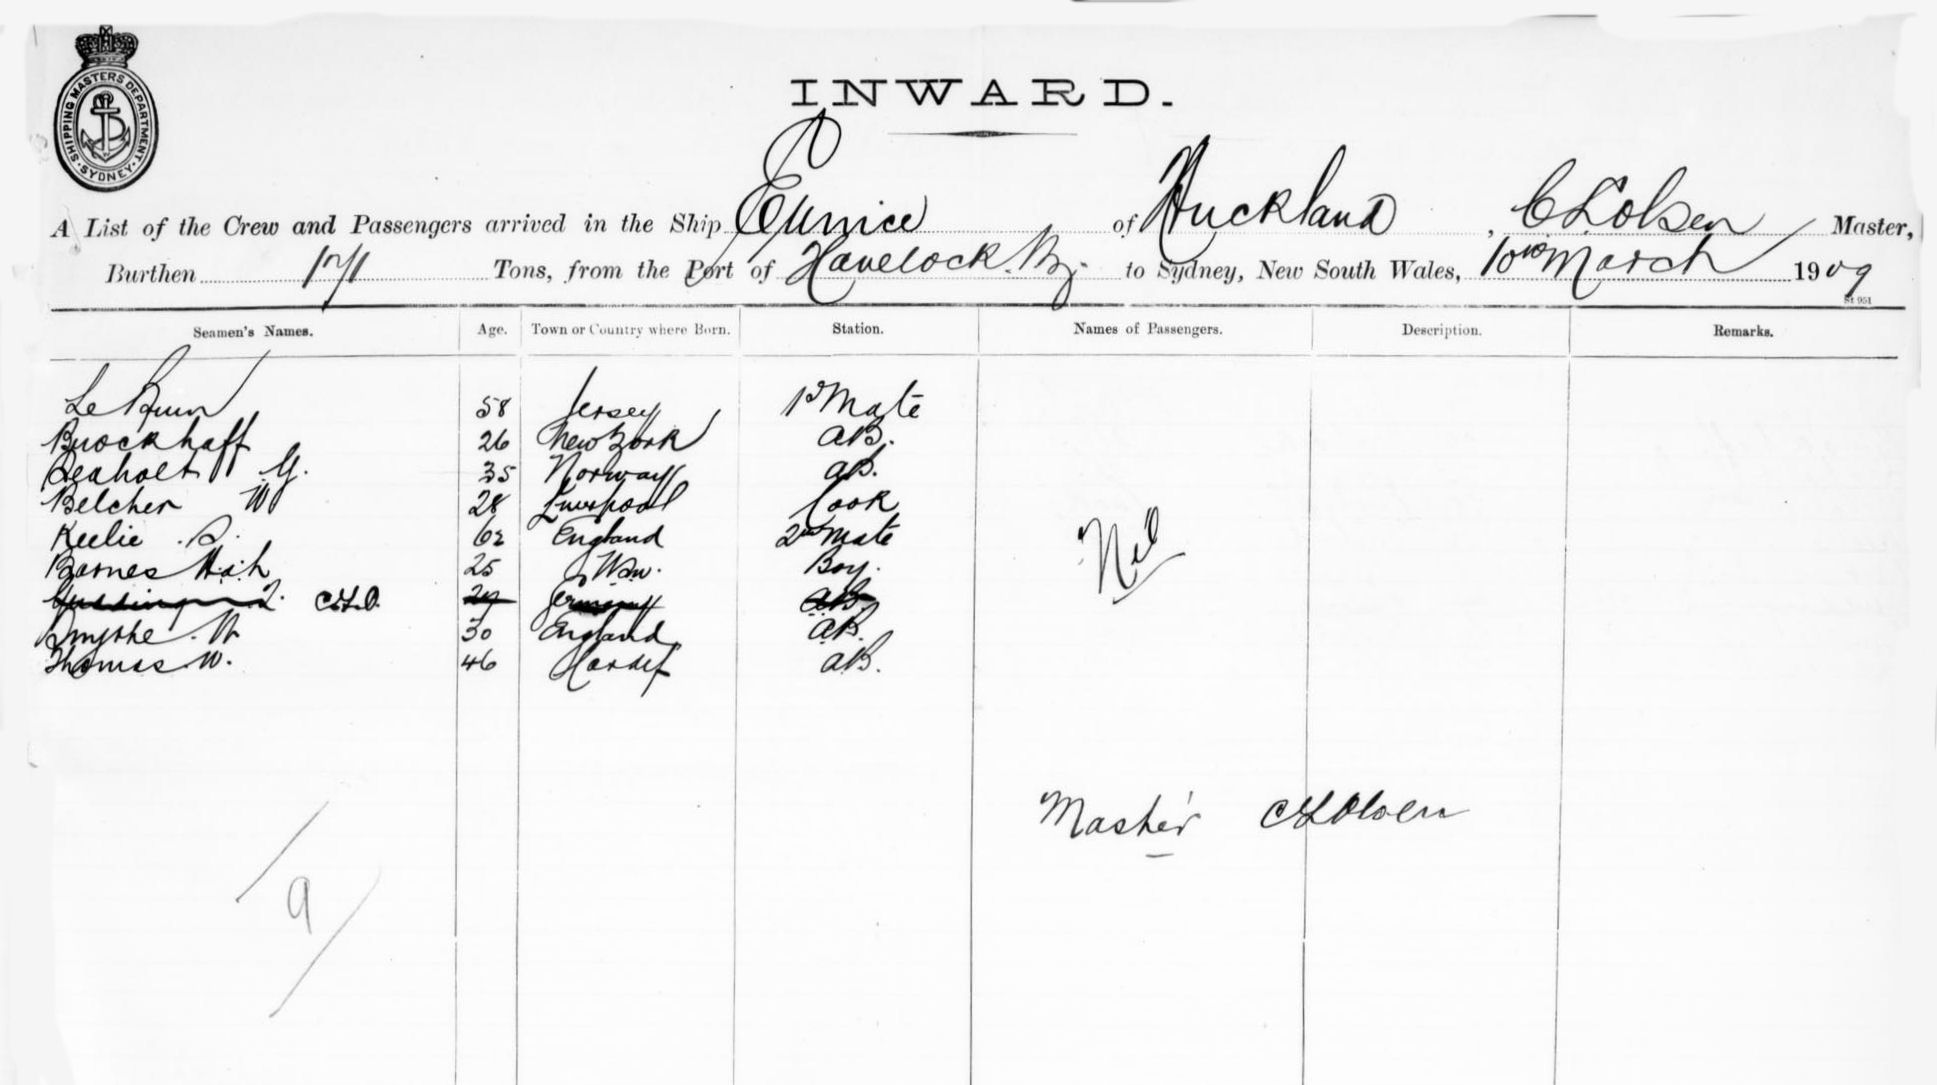 SHIPPING MASTERS DEPARTMENT. SYDNEY.
INWARD.
A List of the Crew and Passengers arrived in the Ship Eunice of Auckland, C L Olsen Master,
Burthen 171 Tons, from the Port of Havelock. N.Z. to Sydney, New South Wales, 10th March 1909
St 951
Seamen's Names. Age. Town or Country where Born. Station. Names of Passengers. Description. Remarks.
Le 58 Jersey 1st Mate
Brockhaff 26 New York A.B.
G. 35 Norway A.B.
Belcher W 28 Liverpool Cook
Keelie 62 England 2nd Mate
Barnes 25 Boy.
C.L.O. Germany A.B.
Smythe. W 30 England A.B.
Thomas W. 46 Cardif A.B.
Nil
Master C L Olsen
9